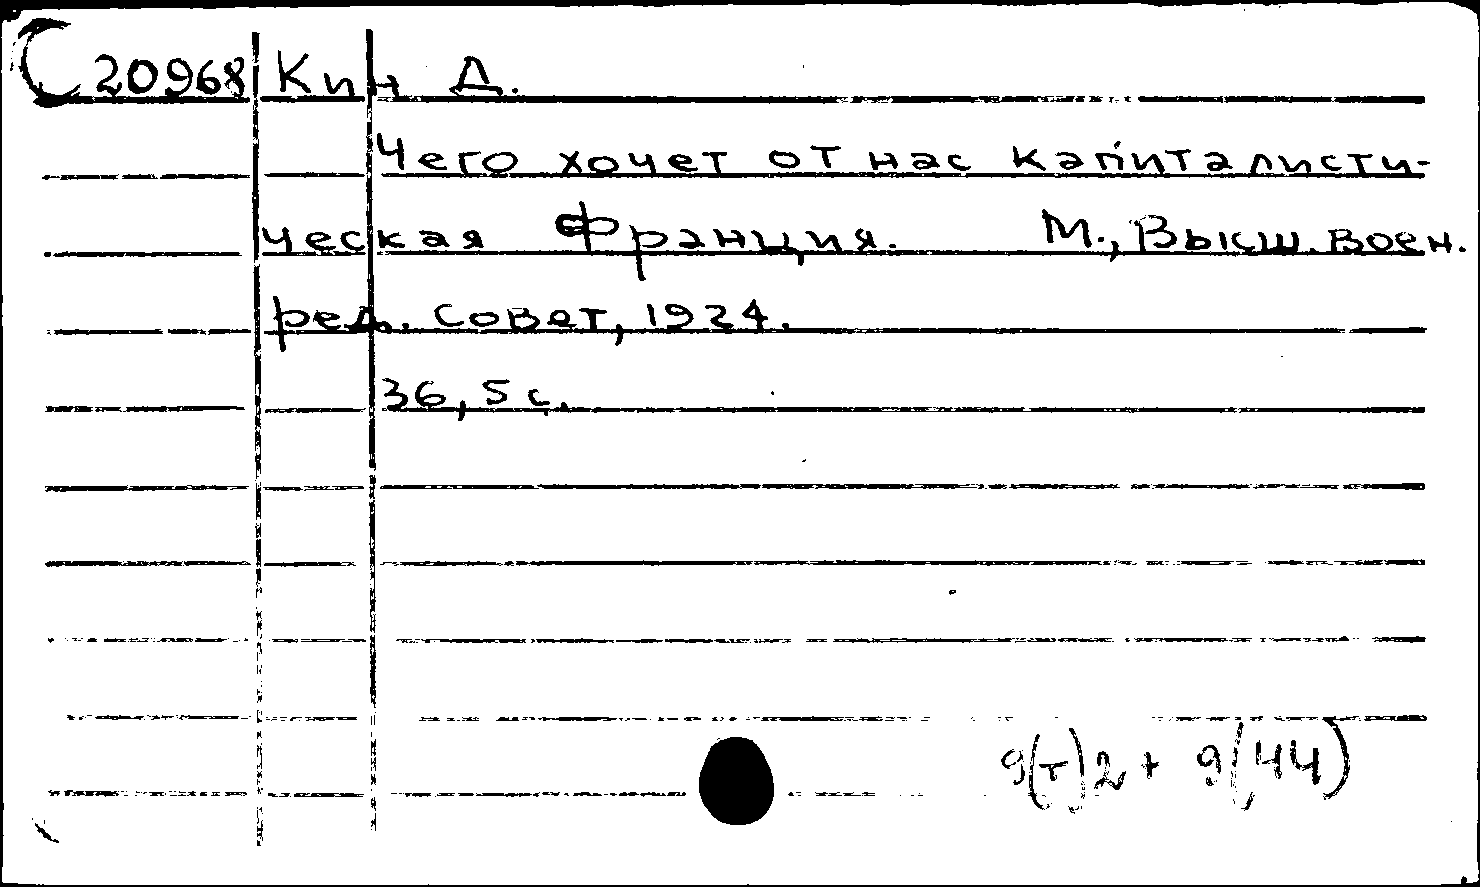 С 20968 Кин Д.
Чего хочет от нас капиталисти-
ческая Франция. М., Высш. воен.
ред. совет, 1924.
36, 5 с.
9(т)2 + 9(44)